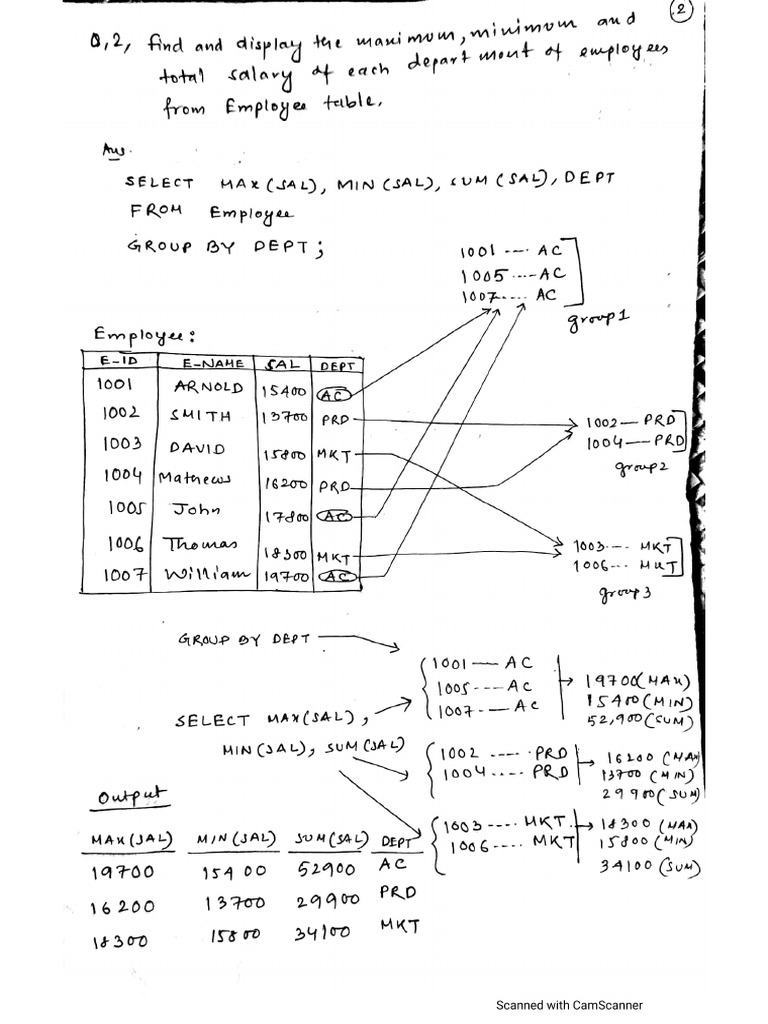 2
Q.2, find and display the maximum, minimum and
total salary of each department of employees
from Employee table.
Ans.
SELECT MAX(SAL), MIN(SAL), SUM(SAL), DEPT
FROM Employee
GROUP BY DEPT;
1001 ---- AC
1005 ---- AC
1007 ---- AC
group1
Employee:
E-ID E-NAME SAL DEPT
1001 ARNOLD 15400 AC
1002 SMITH 13700 PRD
1003 DAVID 15800 MKT
1004 Mathews 16200 PRD
1005 John 17800 AC
1006 Thomas 18300 MKT
1007 William 19700 AC
1002 — PRD
1004 — PRD
group2
1003 ---- MKT
1006 --- MKT
group3
GROUP BY DEPT
1001 — AC
1005 ---- AC
1007 -- AC
19700 (MAX)
15400 (MIN)
52,900 (SUM)
SELECT MAX(SAL),
MIN(SAL), SUM(SAL)
1002 ----- PRD
1004 ---- PRD
16200 (MAX
13700 (MIN)
29900 (SUM)
1003 ---- MKT
1006 ---- MKT
18300 (MAX)
15800 (MIN)
34100 (SUM)
Output
MAX(SAL) MIN(SAL) SUM(SAL) DEPT
19700 15400 52900 AC
16200 13700 29900 PRD
18300 15800 34100 MKT
Scanned with CamScanner